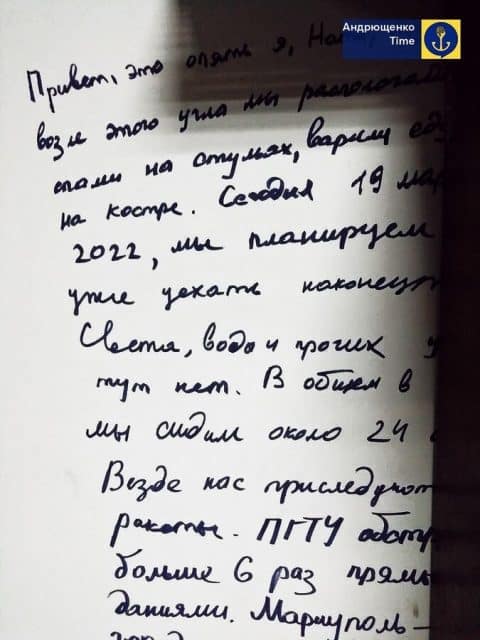 Андрющенко
Time
Привет, это опять я, Наст
возле этого угла мы распологали
спали на стульях, варили еду
на костре. Сегодня 19 мар
2022, мы планируем
уже уехать наконец
Света, вода и прочих у
тут нет. В общем в
мы сидим около 24
Везде нас приследуют
ракеты. ПГТУ обстр
больше 6 раз прямы
даниями. Мариуполь —